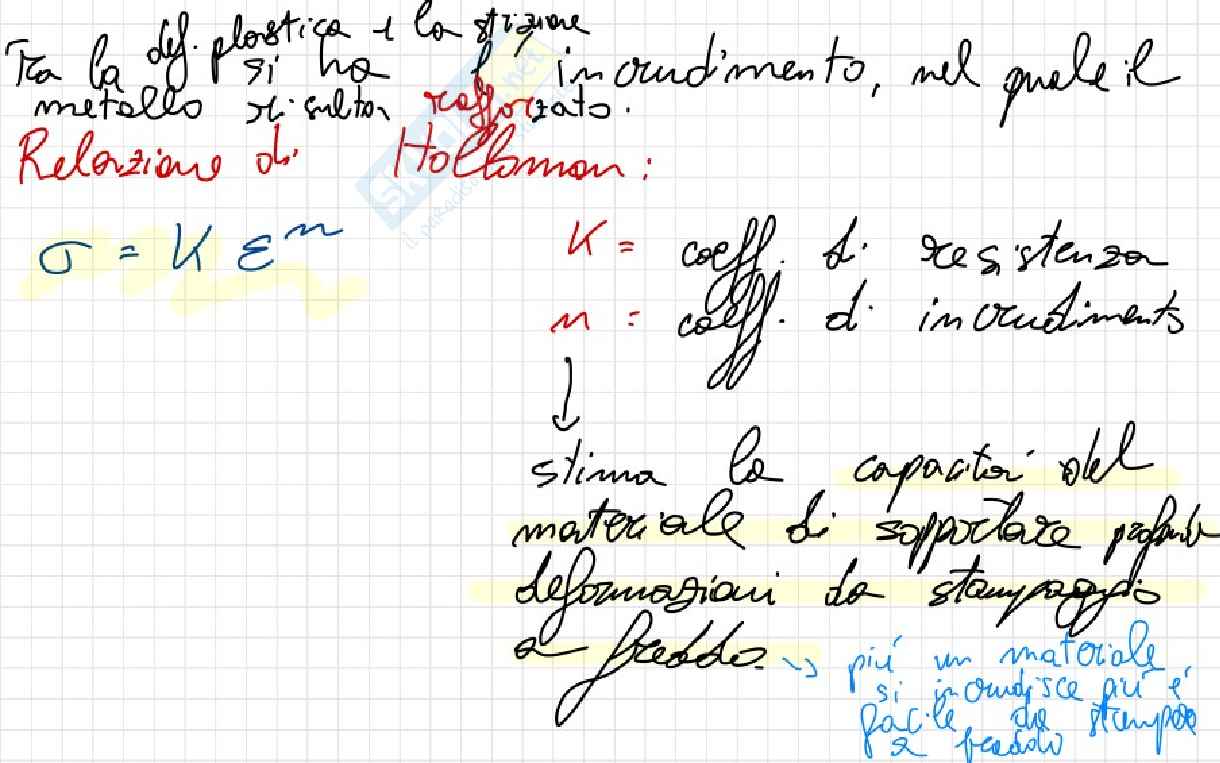 Tra la def. plastica e la strizione
si ha l'incrudimento, nel quale il
metallo risulta rafforzato.
Relazione di Hollomon:
σ = K ε^n
K = coeff. di resistenza
n = coeff. di incrudimento
↓
stima la capacità del
materiale di sopportare profonde
deformazioni da stampaggio
a freddo. → più un materiale
si incrudisce più è
facile da stampare
a freddo